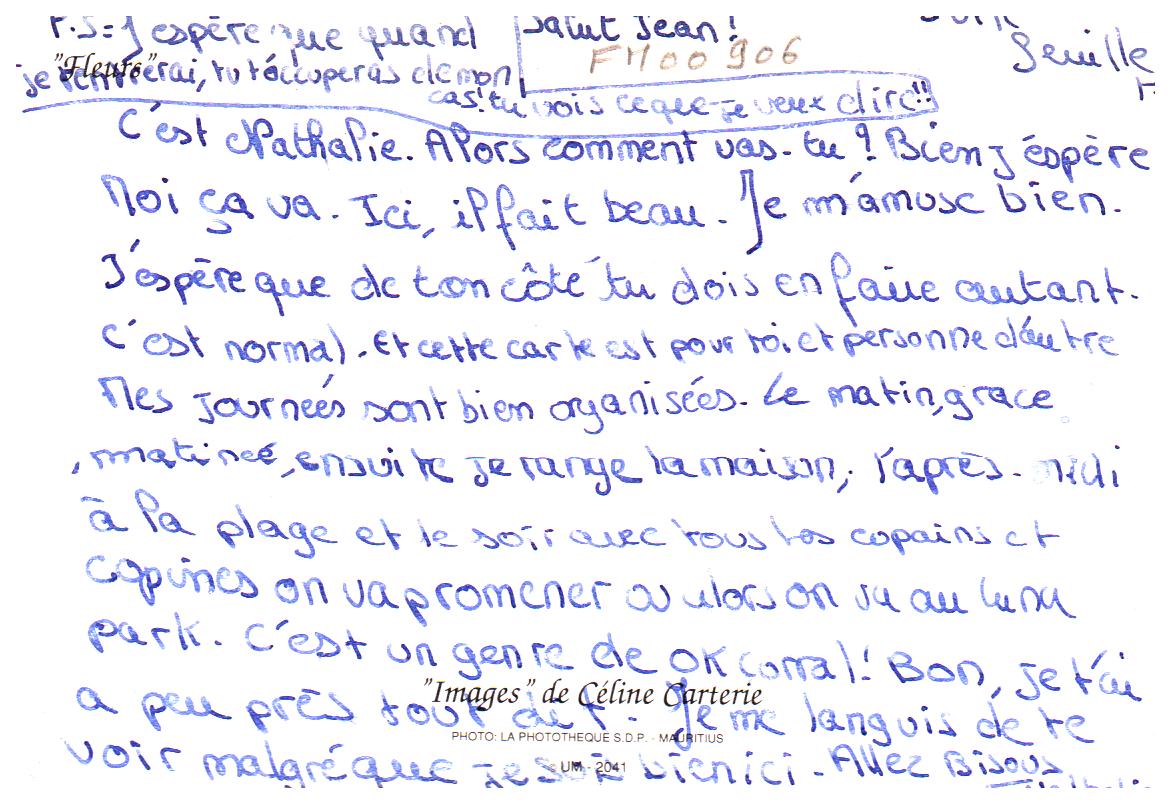 P.S: J'espère que quand
je rentrerai, tu t'occuperas de mon
cas! tu vois ce que je veux dire!!
"Fleurs"
Salut Jean!
FM00906
C'est Nathalie. Alors comment vas-tu? Bien j'éspère
Moi ça va. Ici, il fait beau. Je m'amuse bien.
J'espère que de ton côté tu dois en faire autant.
C'est normal. Et cette carte est pour toi et personne d'autre
Mes journeés sont bien organisées. Le matin, grace
matineé, ensuite je range la maison, l'après-midi
à la plage et le soir avec tous les copains et
copines on va promener ou alors on va au luna
park. C'est un genre de OK Corral! Bon, je t'ai
a peu près tout dit. Je me languis de te
"Images" de Céline Carterie
PHOTO: LA PHOTOTHEQUE S.D.P. - MAURITIUS
voir malgré que je sois bien ici. Allez Bisous
UM - 2041